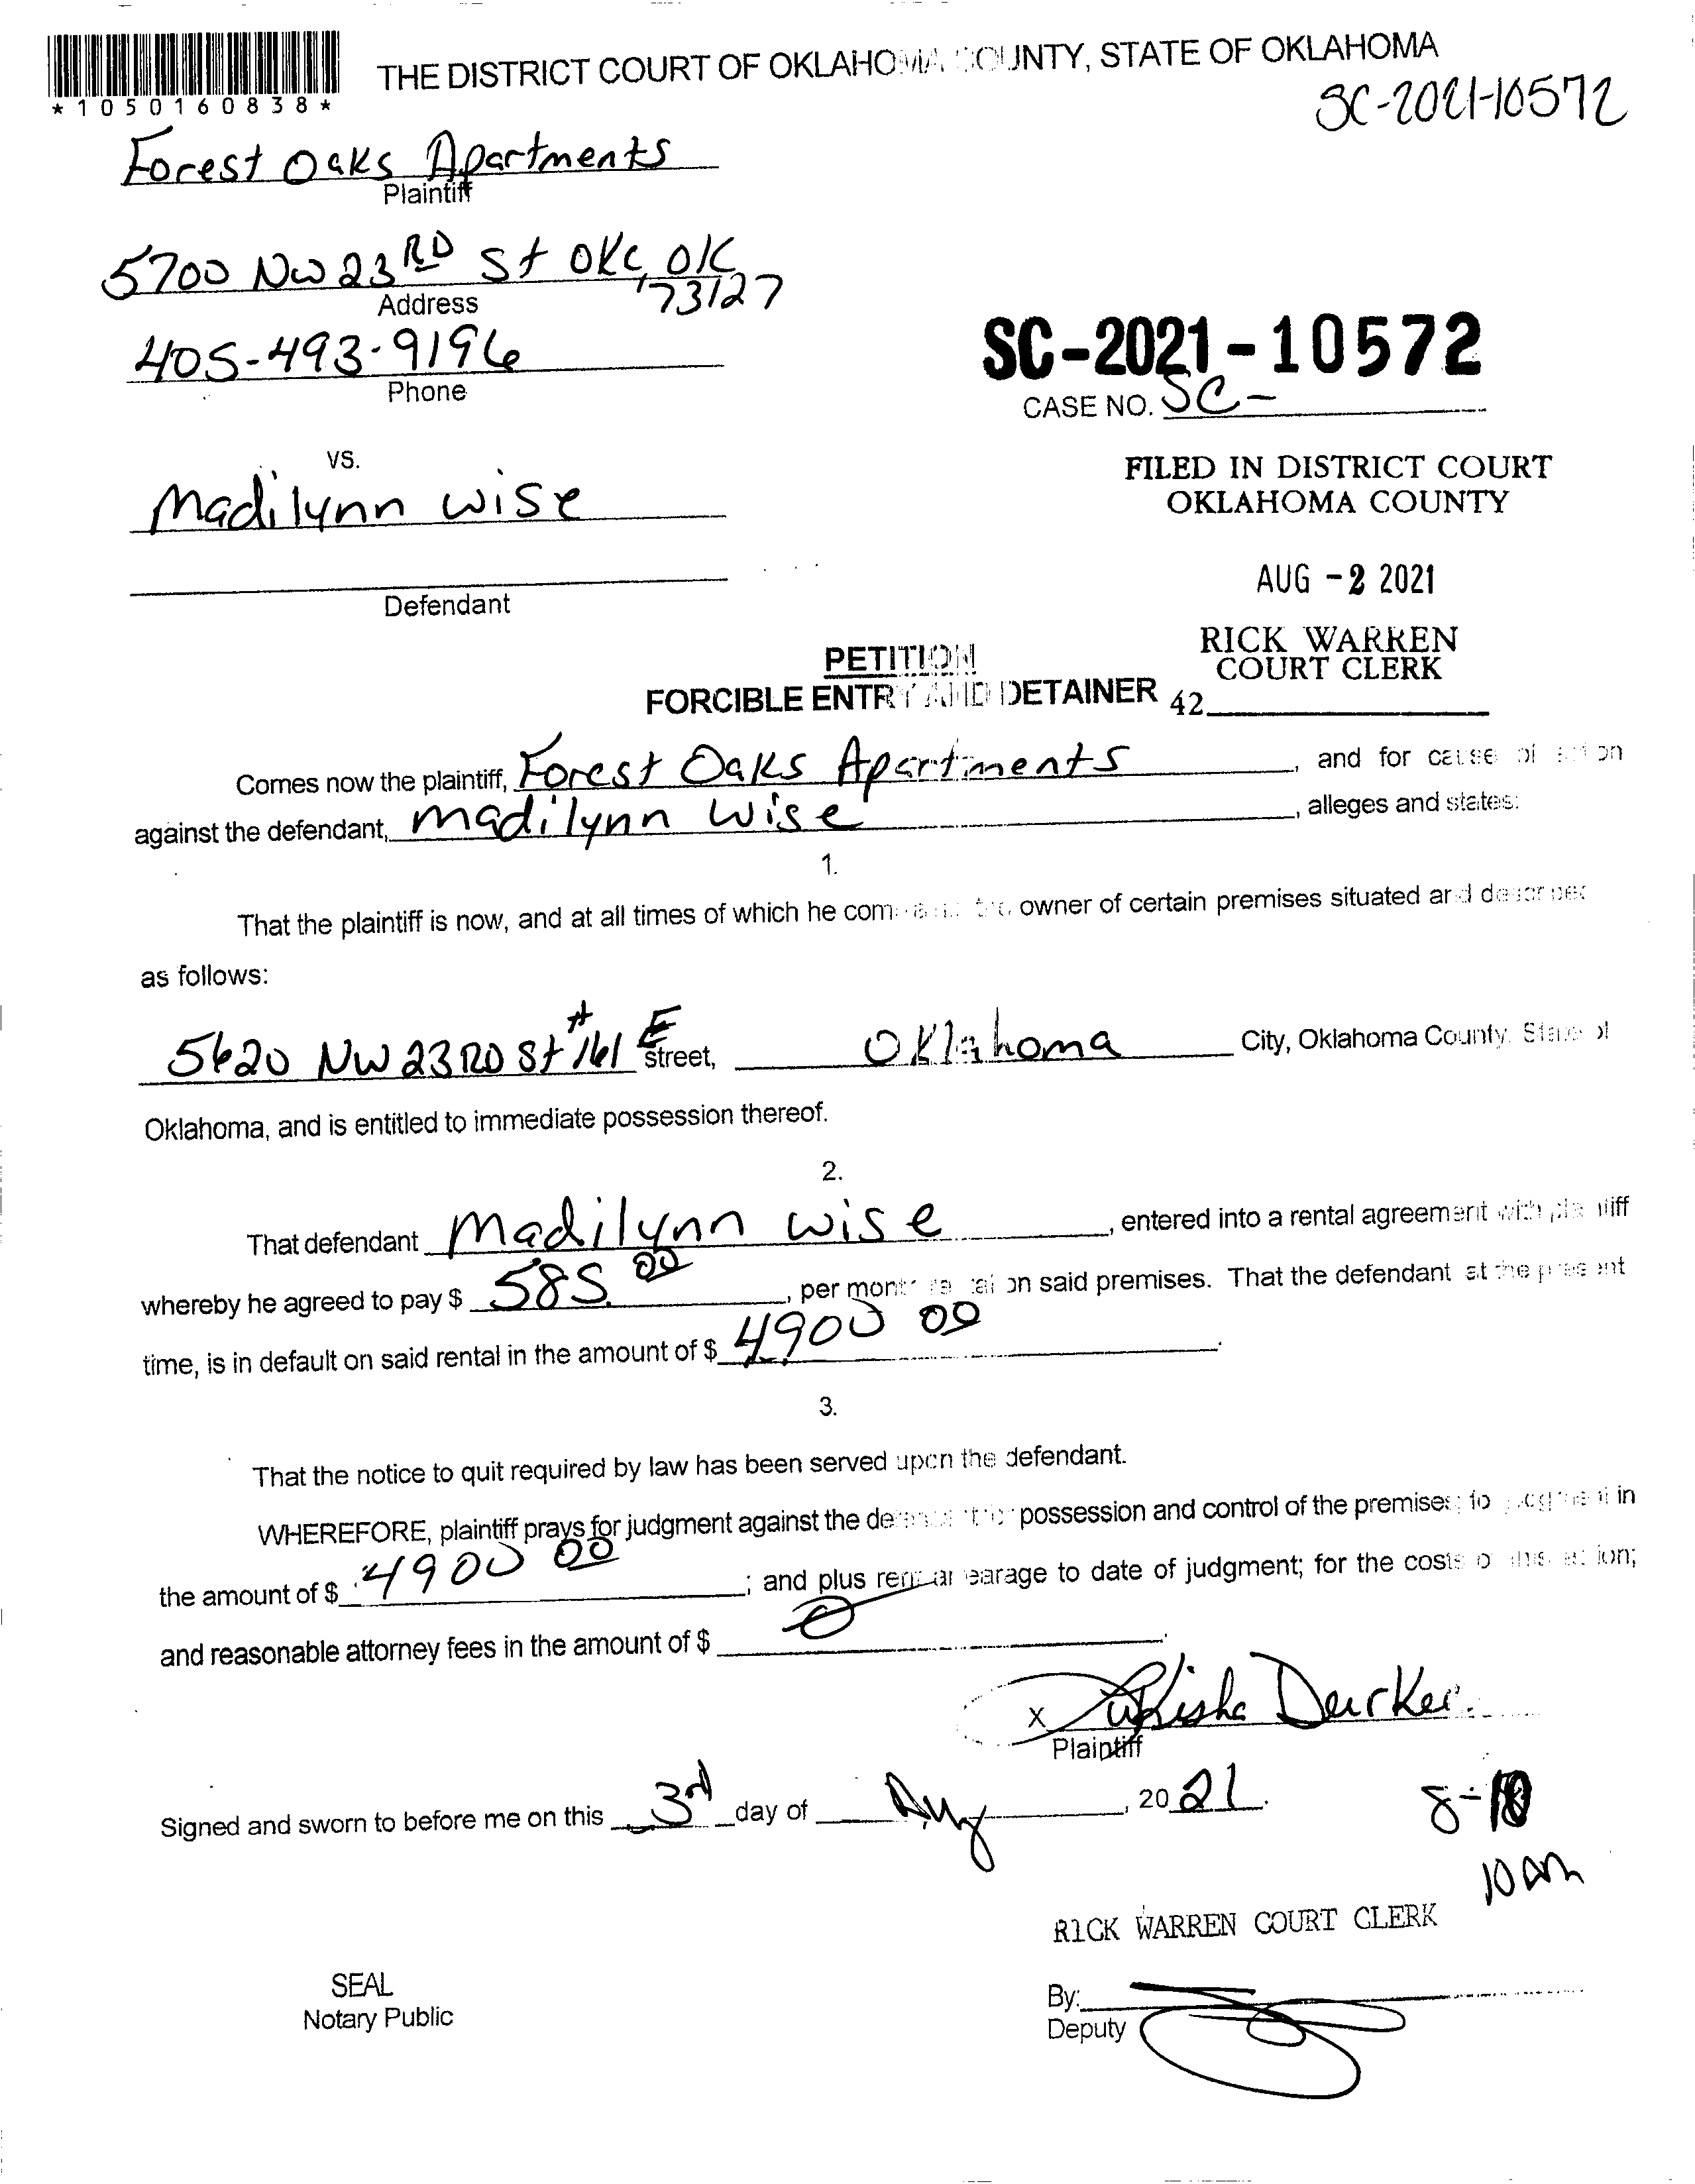 *1050160838*
THE DISTRICT COURT OF OKLAHOMA COUNTY, STATE OF OKLAHOMA
SC-2021-10572
Forest Oaks Apartments
Plaintiff
5700 NW 23RD St OKC, OK
73127
Address
405-493-9196
Phone
SC-2021-10572
CASE NO. SC-
vs.
Madilynn Wise
Defendant
FILED IN DISTRICT COURT
OKLAHOMA COUNTY
AUG -2 2021
RICK WARREN
COURT CLERK
42
PETITION
FORCIBLE ENTRY AND DETAINER
Comes now the plaintiff, Forest Oaks Apartments, and for cause of action
against the defendant, Madilynn Wise, alleges and states:
1.
That the plaintiff is now, and at all times of which he com owner of certain premises situated and described
as follows:
5620 NW 23RD St #161 E Street, Oklahoma City, Oklahoma County, State of
Oklahoma, and is entitled to immediate possession thereof.
2.
That defendant Madilynn Wise, entered into a rental agreement with plaintiff
whereby he agreed to pay $ 585.00, per month rental on said premises. That the defendant at the present
time, is in default on said rental in the amount of $ 4900 00.
3.
That the notice to quit required by law has been served upon the defendant.
WHEREFORE, plaintiff prays for judgment against the defendant for possession and control of the premises; for judgment in
the amount of $ 4900 00; and plus rental arrearage to date of judgment; for the costs of this action;
and reasonable attorney fees in the amount of $ 0.
X
Plaintiff
Signed and sworn to before me on this 3rd day of Aug, 2021.
8-10
10 am
RICK WARREN COURT CLERK
SEAL
Notary Public
By:
Deputy